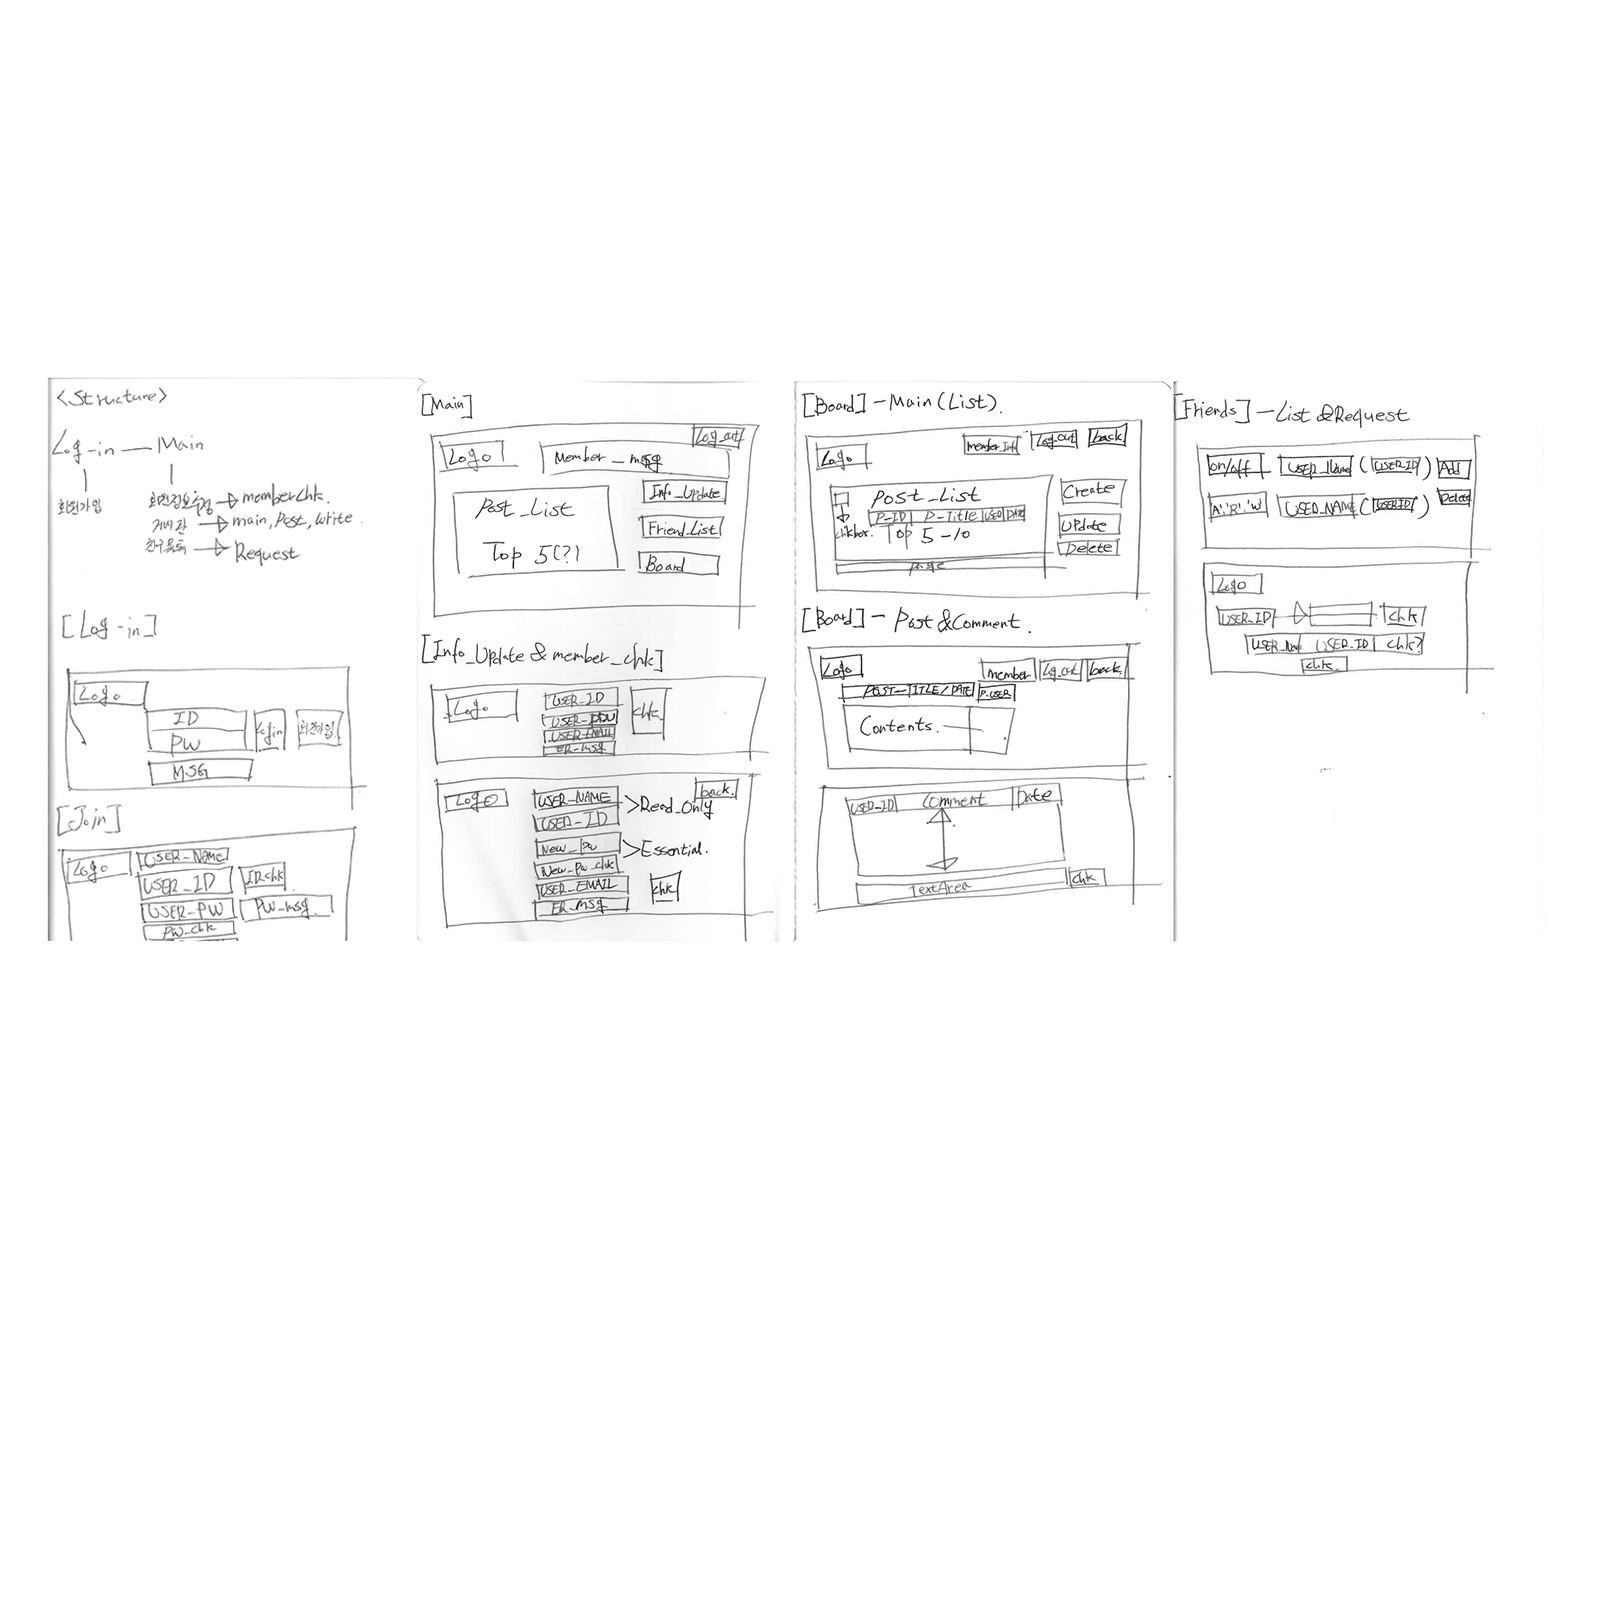 <Structure>
Log-in — Main
회원가입
회원정보수정 → memberchk.
게시판 → main, Post, write.
친구목록 → Request
[Log-in]
Logo
ID
PW
Login
회원가입
MSG
[Join]
Logo
USER-NAME
USER-ID
ID_chk
USER-PW
PW_msg
PW_chk
[Main]
Log_out
Logo
Member_msg
Post_List
Top 5(?)
Info_Update
Friend_List
Board
[Info_Update & member_chk]
Logo
USER-ID
USER-EMAIL
ER-msg
chk
Logo
back.
USER-NAME
USER-ID
>Read_Only
New_pw
New_pw_chk
>Essential.
USER-EMAIL
ER_msg
chk
[Board] - Main(List).
member_Info
Log_out
back
Logo
Post_List
P-ID P-Title USER DATE
chkbox.
Top 5-10
page
Create
Update
Delete
[Board] - Post & Comment.
Logo
member
Log_out
back.
POST-TITLE/DATE
P-USER
Contents.
USER-ID Comment Date
TextArea
chk
[Friends] - List & Request
on/off USER_Name (USER_ID) Add
'A','R','W' USER_NAME (USERID) Delete
Logo
USER_ID → chk
USER_Name USER_ID chk?
chk.